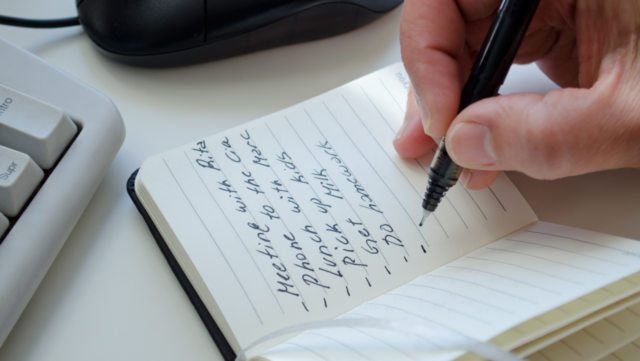 Meeting with Rita
- Phone to the Marc
- Lunch with kids
- Pick up Milk
- Get homework
- DO
-
Supr